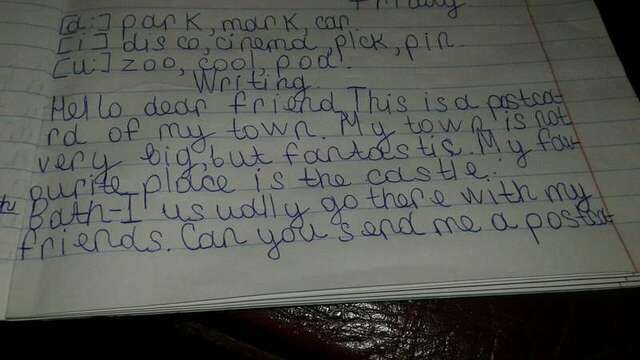 Friday
[a:] park, mark, car
[i] disco, cinema, pick, pin
[u:] zoo, cool, pool.
Writing
Hello dear friend. This is a postca-
rd of my town. My town is not
very big but fantastis. My fav-
ourite place is the castle.
Bath-I usually go there with my
friends. Can you send me a postca-